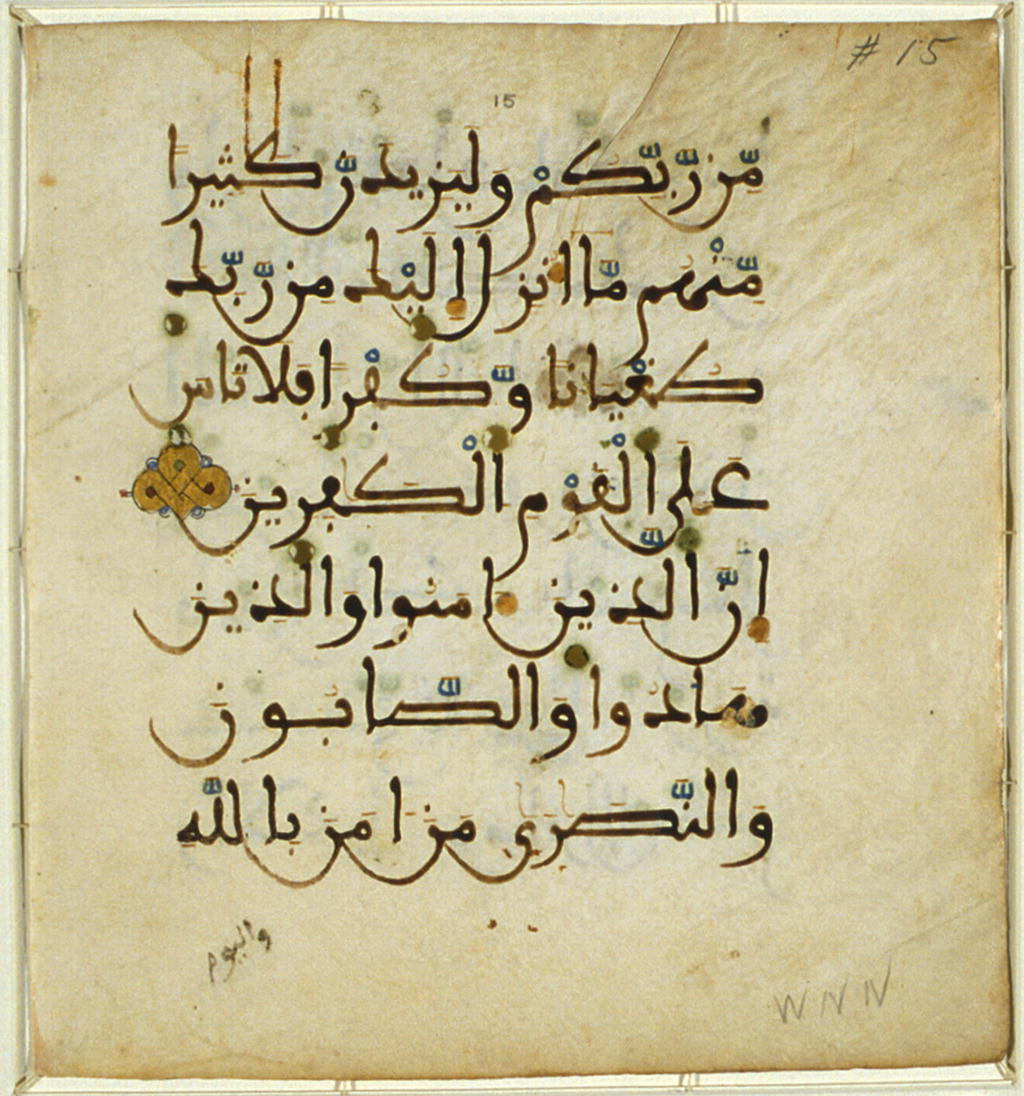 # 15
15
مِّن رَّبِّكُمْ وَلَيَزِيدَنَّ كَثِيرًا
مِّنْهُم مَّا أُنزِلَ إِلَيْكَ مِن رَّبِّكَ
طُغْيَانًا وَّكُفْرًا فَلَا تَاسَ
عَلَى الْقَوْمِ الْكَفِرِينَ
إِنَّ الَّذِينَ ءَامَنُوا وَالَّذِينَ
هَادُوا وَالصَّابُونَ
وَالنَّصَرَى مَنَ امَنَ بِاللَّهِ
واليوم
W N IV